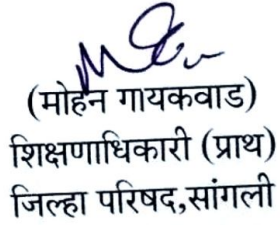 (मोहन गायकवाड)
शिक्षणाधिकारी (प्राथ)
जिल्हा परिषद,सांगली